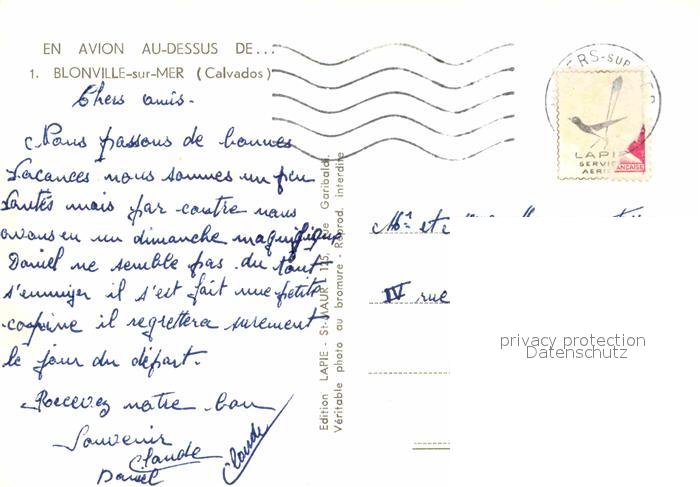 EN AVION AU-DESSUS DE...
1. BLONVILLE-sur-MER (Calvados)
Chers amis.
Nous passons de bonnes
vacances nous sommes un peu
mais par contre nous
avons eu un dimanche magnifique
Daniel ne semble pas du tout
s'ennuyer il s'est fait une petite
copine il regrettera surement
le jour du départ.
Recevez notre bon
Souvenir
Claude
Claude
Daniel
Edition LAPIE - St-MAUR - 125, rue Garibaldi
Véritable photo au bromure - Reprod. interdite
ERS-SUR-MER
LAPIE
SERVICE
AERIEN
ANÇAISE
Mr et
IV rue
privacy protection
Datenschutz